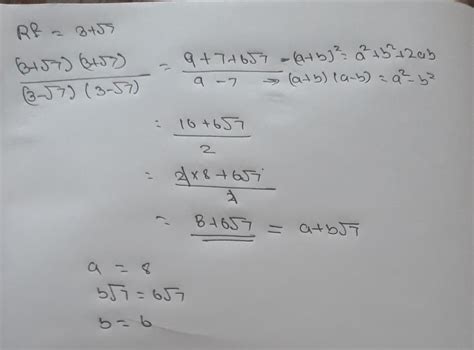 Rf = 3+√7
(3+√7) (3+√7) / (3-√7) (3-√7) = 9+7+6√7 / 9-7 → (a+b)² = a²+b²+2ab
→ (a+b) (a-b) = a²-b²
= 16+6√7 / 2
= 2×8+6√7 / 2
= 8+6√7 = a+b√7
a = 8
b√7 = 6√7
b = 6